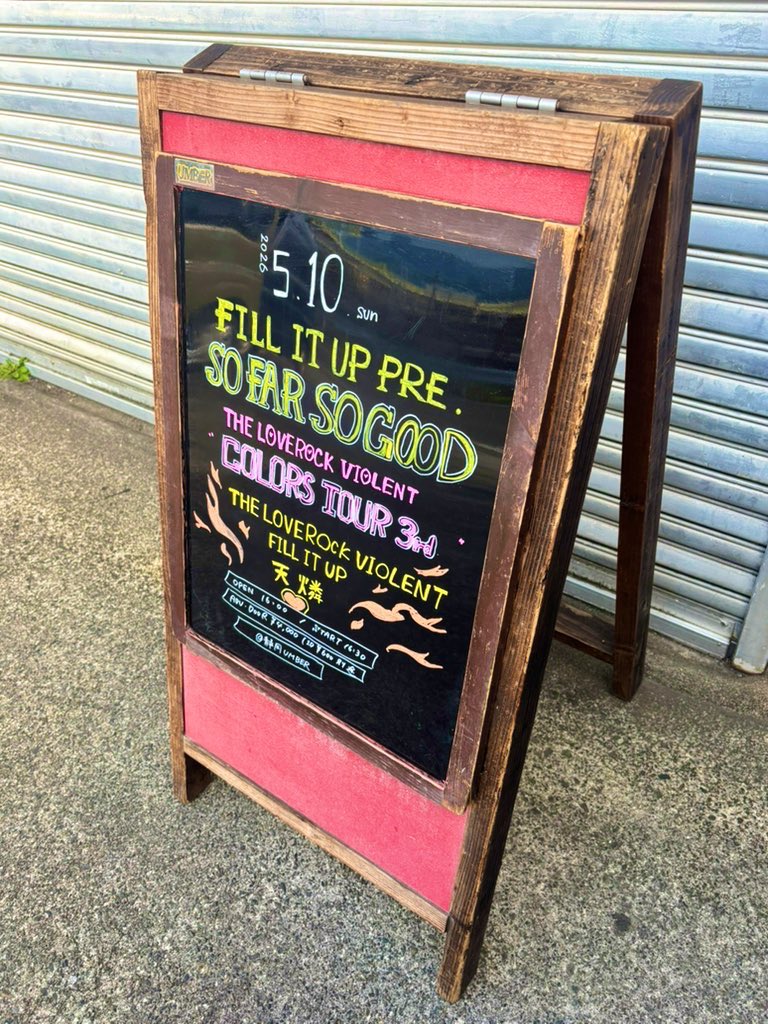 UMBER
2026
5.10.sun
FILL IT UP PRE.
SO FAR SO GOOD
THE LOVEROCK VIOLENT
"COLORS TOUR 3rd"
THE LOVEROCK VIOLENT
FILL IT UP
天燐
OPEN 16:00 / START 16:30
ADV. DOOR ¥4,000 (1D ¥600 別途
@静岡UMBER